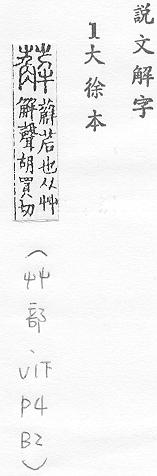 說文解字
1大徐本
薢
薢茩也从艸
解聲胡買切
(艸部、V1下P4B2)